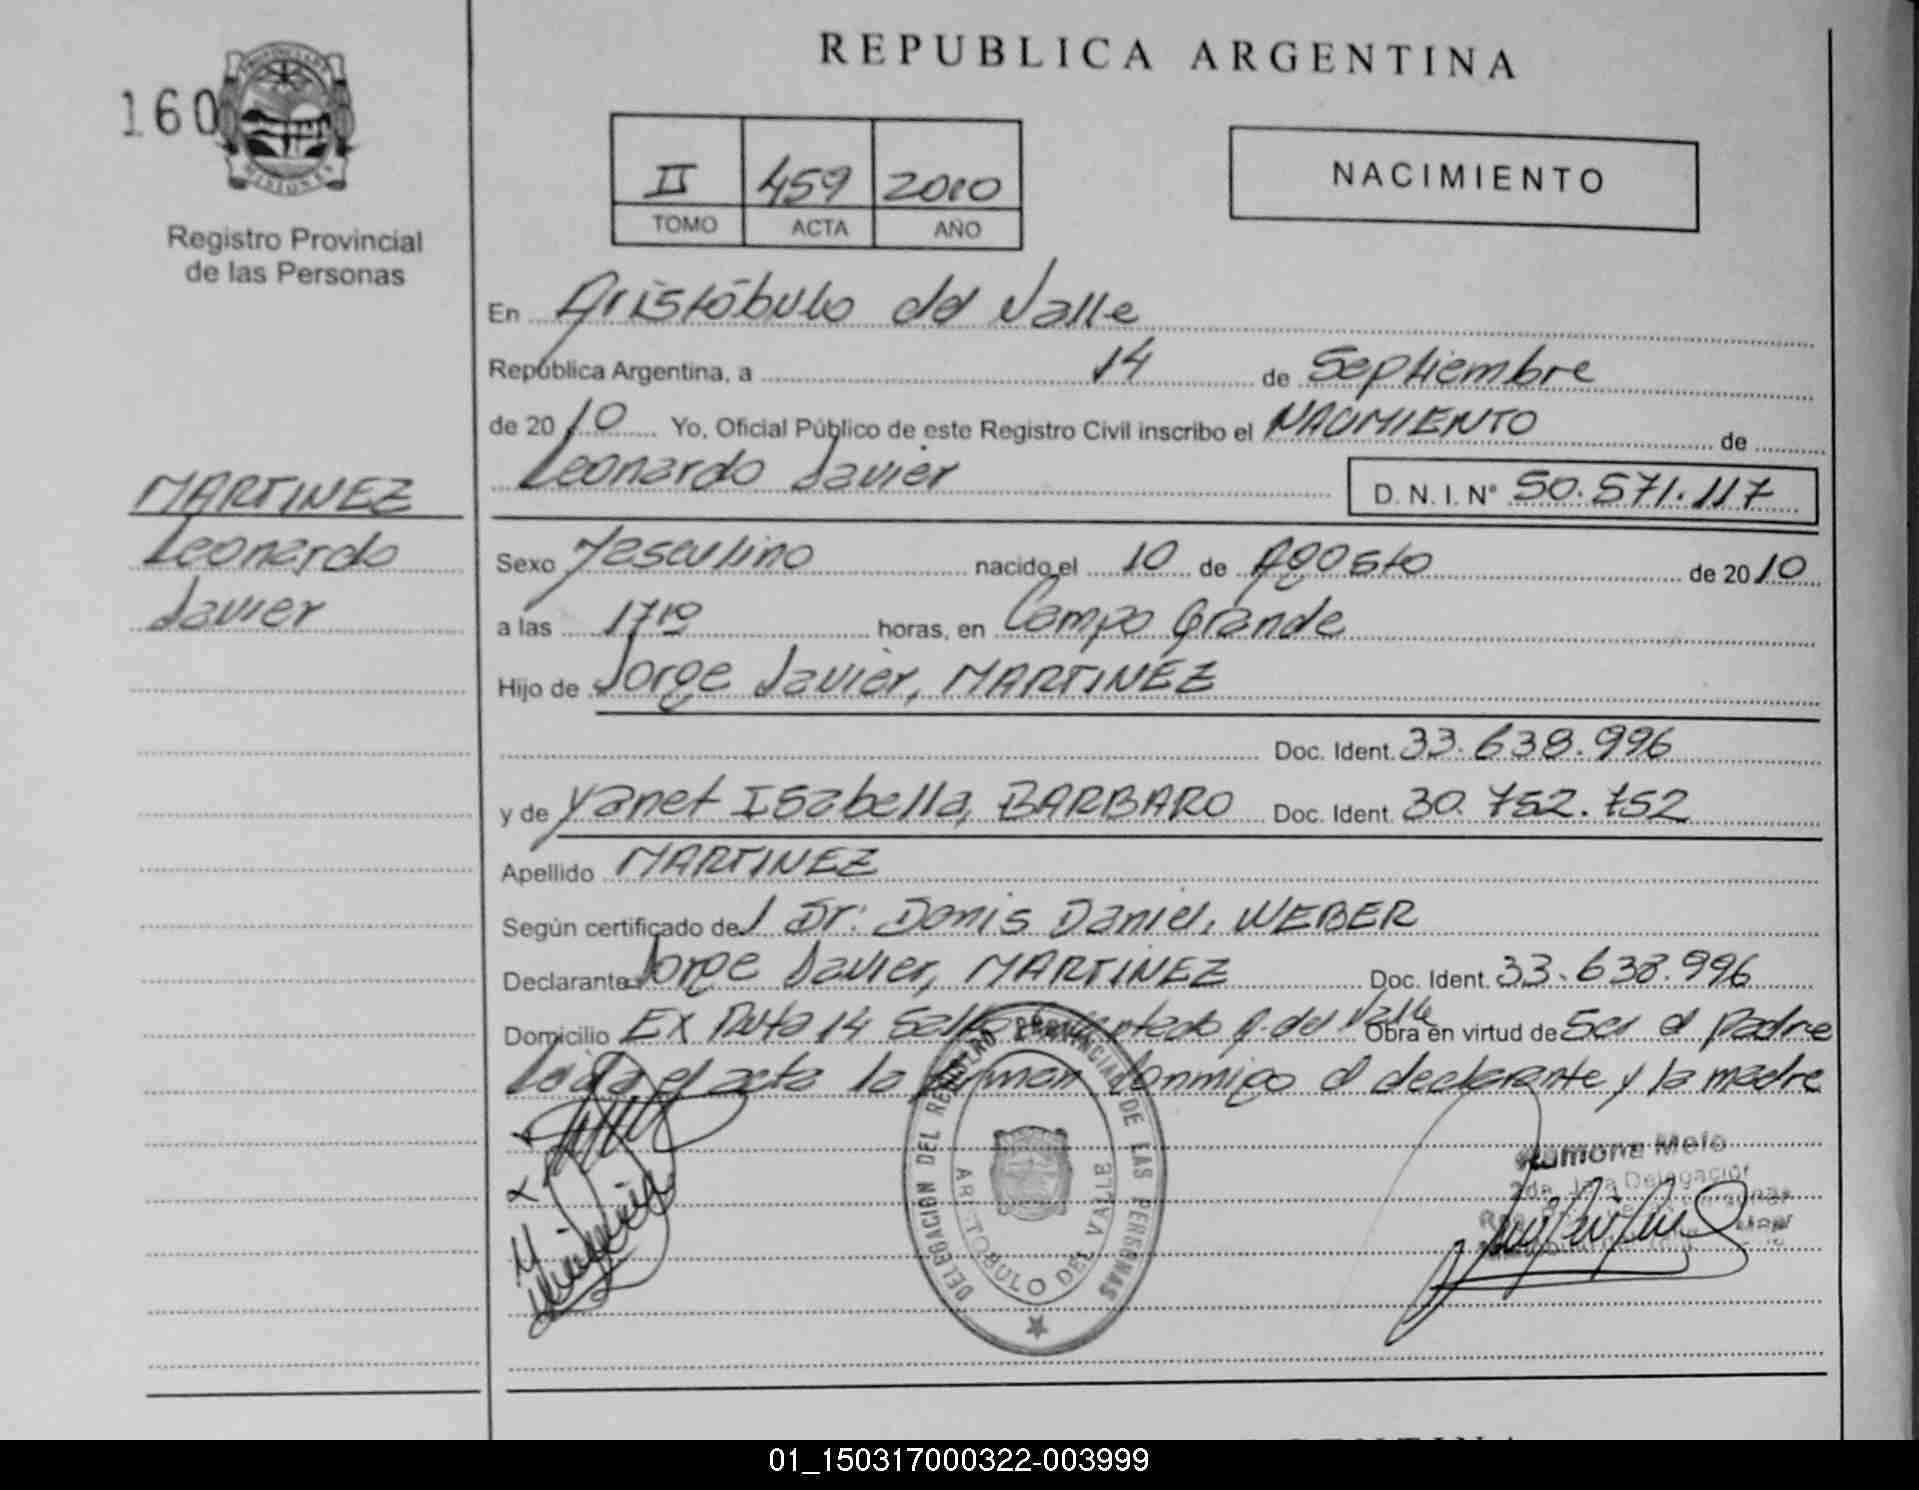 REPUBLICA ARGENTINA
160
MISIONES
Registro Provincial
de las Personas
II 459 2010
TOMO ACTA AÑO
NACIMIENTO
En Aristóbulo del Valle
República Argentina, a 14 de Septiembre
de 2010 Yo, Oficial Público de este Registro Civil inscribo el NACIMIENTO de
Leonardo Javier D. N. I. N° 50.571.117
MARTINEZ
Leonardo
Javier
Sexo Masculino nacido el 10 de Agosto de 2010
a las 17 10 horas, en Campo Grande
Hijo de Jorge Javier, MARTINEZ
Doc. Ident. 33.638.996
y de Yanet Isabella, BARBARO Doc. Ident. 30.752.752
Apellido MARTINEZ
Según certificado del Dr. Donis Daniel, WEBER
Declarante Jorge Javier, MARTINEZ Doc. Ident. 33.638.996
Domicilio Ex Ruta 14 Salto A. del Valle Obra en virtud de Ser el padre
Leída el acta la firman conmigo el declarante y la madre
DELEGACION DEL REGISTRO PROVINCIAL DE LAS PERSONAS
ARISTOBULO DEL VALLE
Ramona Melo
2da. Jefa Delegación
01_150317000322-003999